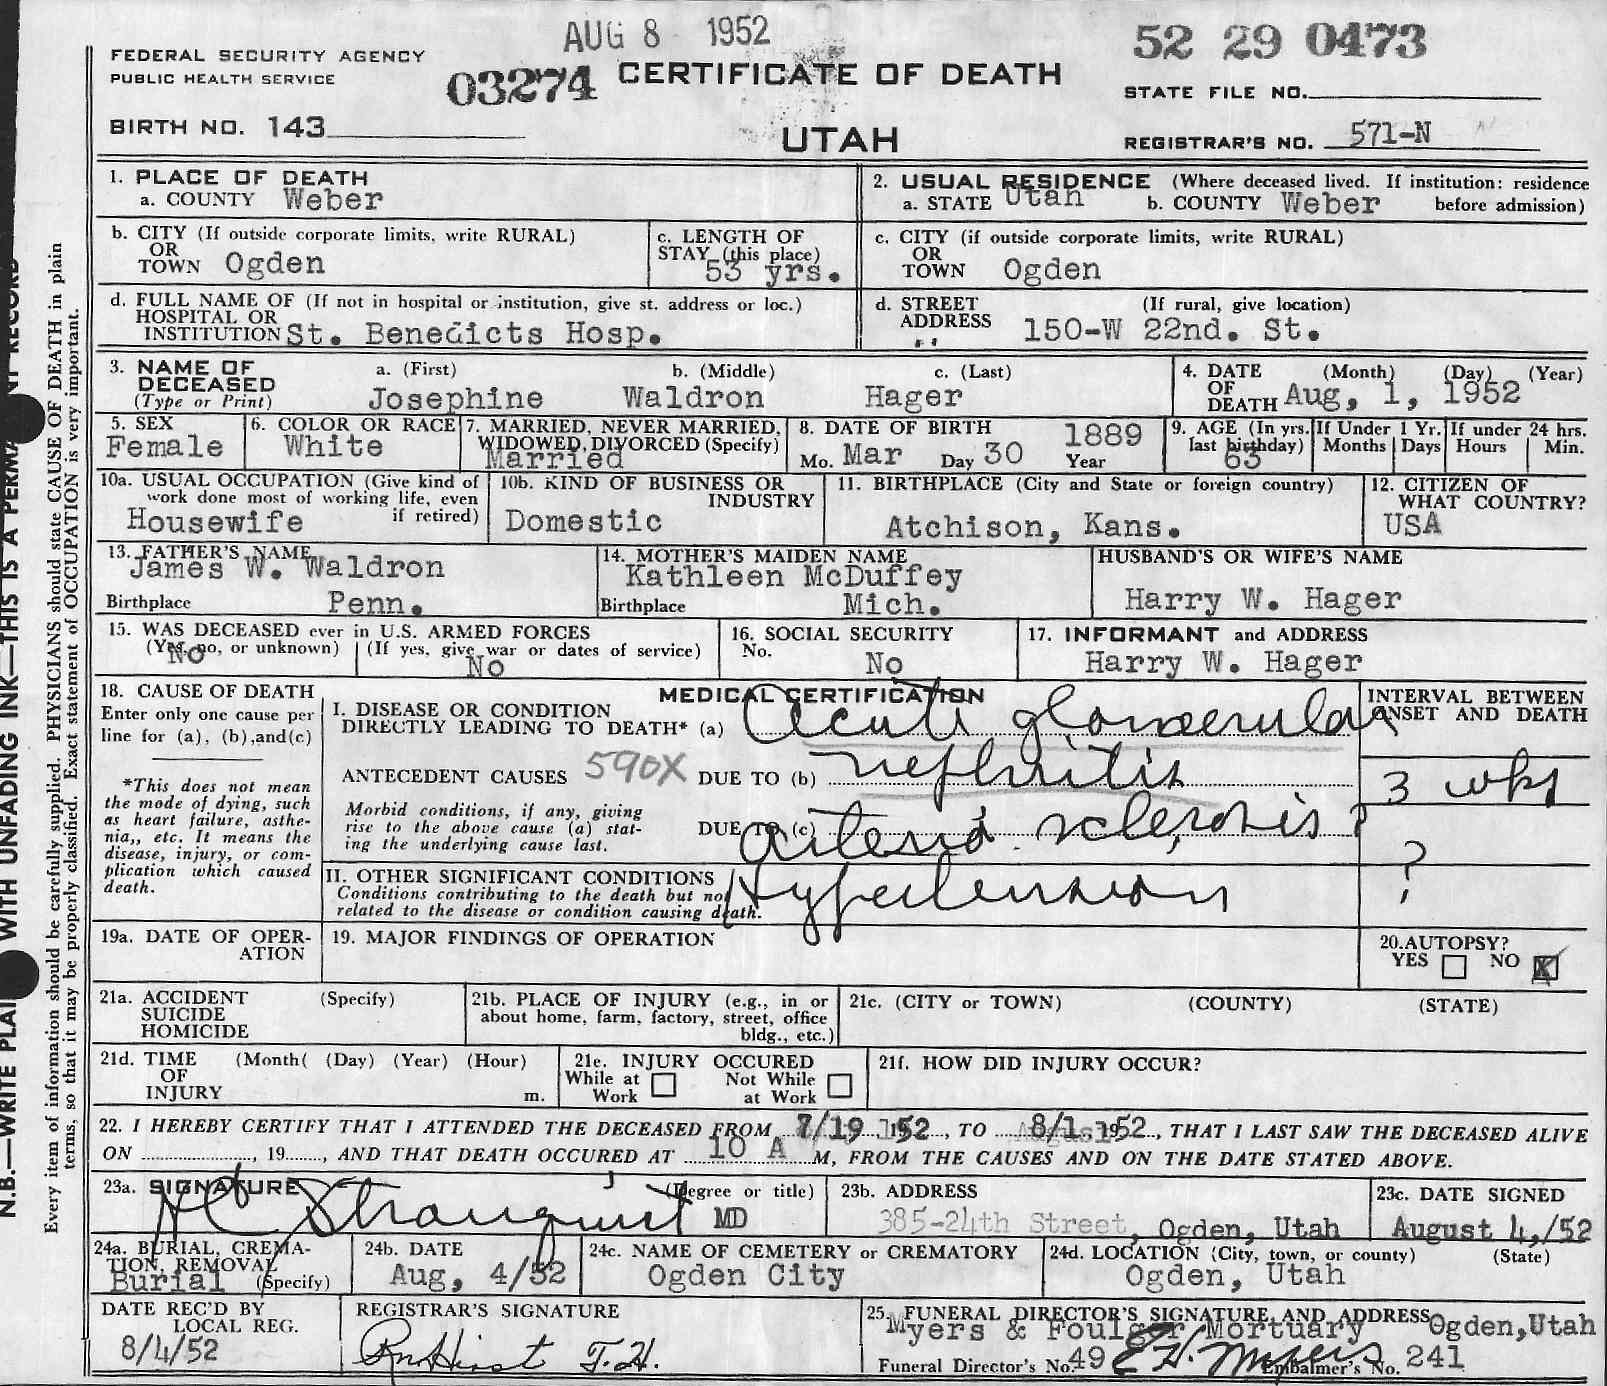 AUG 8 1952
52 29 0473
FEDERAL SECURITY AGENCY
PUBLIC HEALTH SERVICE
03274 CERTIFICATE OF DEATH
STATE FILE NO.
BIRTH NO. 143
UTAH
REGISTRAR'S NO. 571-N
1. PLACE OF DEATH
a. COUNTY Weber
2. USUAL RESIDENCE (Where deceased lived. If institution: residence
a. STATE Utah b. COUNTY Weber before admission)
b. CITY (If outside corporate limits, write RURAL)
OR
TOWN Ogden
c. LENGTH OF
STAY (this place)
53 yrs.
c. CITY (if outside corporate limits, write RURAL)
OR
TOWN Ogden
d. FULL NAME OF (If not in hospital or institution, give st. address or loc.)
HOSPITAL OR
INSTITUTION St. Benedicts Hosp.
d. STREET (If rural, give location)
ADDRESS 150-W 22nd. St.
3. NAME OF DECEASED (Type or Print)
a. (First) b. (Middle) c. (Last)
Josephine Waldron Hager
4. DATE OF DEATH (Month) (Day) (Year)
Aug, 1, 1952
5. SEX
Female
6. COLOR OR RACE
White
7. MARRIED, NEVER MARRIED,
WIDOWED, DIVORCED (Specify)
Married
8. DATE OF BIRTH 1889
Mo. Mar Day 30 Year
9. AGE (In yrs. last birthday)
63
If Under 1 Yr.
Months Days
If under 24 hrs.
Hours Min.
10a. USUAL OCCUPATION (Give kind of
work done most of working life, even
if retired)
Housewife
10b. KIND OF BUSINESS OR
INDUSTRY
Domestic
11. BIRTHPLACE (City and State or foreign country)
Atchison, Kans.
12. CITIZEN OF
WHAT COUNTRY?
USA
13. FATHER'S NAME
James W. Waldron
Birthplace Penn.
14. MOTHER'S MAIDEN NAME
Kathleen McDuffey
Birthplace Mich.
HUSBAND'S OR WIFE'S NAME
Harry W. Hager
15. WAS DECEASED ever in U.S. ARMED FORCES
(Yes, no, or unknown) (If yes, give war or dates of service)
No No
16. SOCIAL SECURITY
No.
No
17. INFORMANT and ADDRESS
Harry W. Hager
18. CAUSE OF DEATH
Enter only one cause per
line for (a), (b),and(c)
*This does not mean
the mode of dying, such
as heart failure, asthe-
nia,, etc. It means the
disease, injury, or com-
plication which caused
death.
MEDICAL CERTIFICATION
I. DISEASE OR CONDITION
DIRECTLY LEADING TO DEATH* (a) Acute glomerular
ANTECEDENT CAUSES 590X DUE TO (b) nephritis
Morbid conditions, if any, giving
rise to the above cause (a) stat-
ing the underlying cause last.
DUE TO (c) arterio sclerosis ?
II. OTHER SIGNIFICANT CONDITIONS
Conditions contributing to the death but not
related to the disease or condition causing death.
Hypertension
INTERVAL BETWEEN
ONSET AND DEATH
3 wks
?
19a. DATE OF OPER-
ATION
19. MAJOR FINDINGS OF OPERATION
20.AUTOPSY?
YES NO X
21a. ACCIDENT (Specify)
SUICIDE
HOMICIDE
21b. PLACE OF INJURY (e.g., in or
about home, farm, factory, street, office
bldg., etc.)
21c. (CITY or TOWN) (COUNTY) (STATE)
21d. TIME (Month( (Day) (Year) (Hour)
OF
INJURY m.
21e. INJURY OCCURED
While at Work Not While at Work
21f. HOW DID INJURY OCCUR?
22. I HEREBY CERTIFY THAT I ATTENDED THE DECEASED FROM 7/19 1952, TO 8/1 1952, THAT I LAST SAW THE DECEASED ALIVE
ON , 19 , AND THAT DEATH OCCURED AT 10 A M, FROM THE CAUSES AND ON THE DATE STATED ABOVE.
23a. SIGNATURE (Degree or title)
HC Stranquist MD
23b. ADDRESS
385-24th Street, Ogden, Utah
23c. DATE SIGNED
August 4,/52
24a. BURIAL, CREMA-
TION, REMOVAL
Burial (Specify)
24b. DATE
Aug, 4/52
24c. NAME OF CEMETERY or CREMATORY
Ogden City
24d. LOCATION (City, town, or county) (State)
Ogden, Utah
DATE REC'D BY
LOCAL REG.
8/4/52
REGISTRAR'S SIGNATURE
25. FUNERAL DIRECTOR'S SIGNATURE AND ADDRESS
Myers & Foulger Mortuary Ogden,Utah
Funeral Director's No. 49 E H. Myers Embalmer's No. 241
N.B.—WRITE PLAINLY WITH UNFADING INK—THIS IS A PERMANENT RECORD
Every item of information should be carefully supplied. PHYSICIANS should state CAUSE OF DEATH in plain
terms, so that it may be properly classified. Exact statement of OCCUPATION is very important.